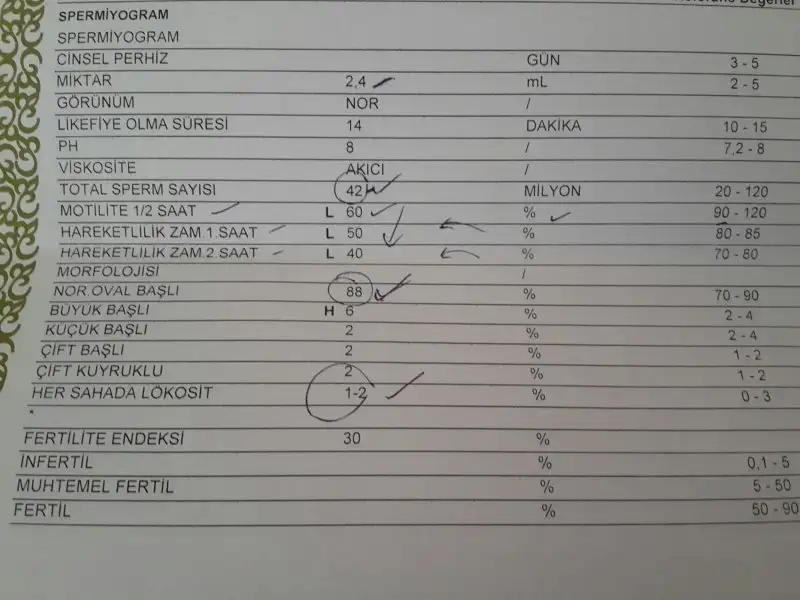 Değerler
SPERMİYOGRAM
SPERMİYOGRAM
CİNSEL PERHİZ GÜN 3 - 5
MİKTAR 2,4 mL 2 - 5
GÖRÜNÜM NOR /
LİKEFİYE OLMA SÜRESİ 14 DAKİKA 10 - 15
PH 8 / 7,2 - 8
VİSKOSİTE AKICI /
TOTAL SPERM SAYISI 42 MİLYON 20 - 120
MOTİLİTE 1/2 SAAT L 60 % 90 - 120
HAREKETLİLİK ZAM.1.SAAT L 50 % 80 - 85
HAREKETLİLİK ZAM.2.SAAT L 40 % 70 - 80
MORFOLOJİSİ /
NOR.OVAL BAŞLI 88 % 70 - 90
BÜYÜK BAŞLI H 6 % 2 - 4
KÜÇÜK BAŞLI 2 % 2 - 4
ÇİFT BAŞLI 2 % 1 - 2
ÇİFT KUYRUKLU 2 % 1 - 2
HER SAHADA LÖKOSİT 1-2 % 0 - 3
*
FERTİLİTE ENDEKSİ 30 %
İNFERTİL % 0,1 - 5
MUHTEMEL FERTİL % 5 - 50
FERTİL % 50 - 90